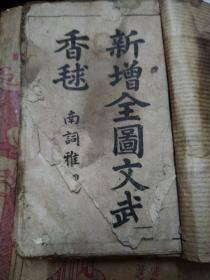 新增全圖文武
香毬
南詞雅